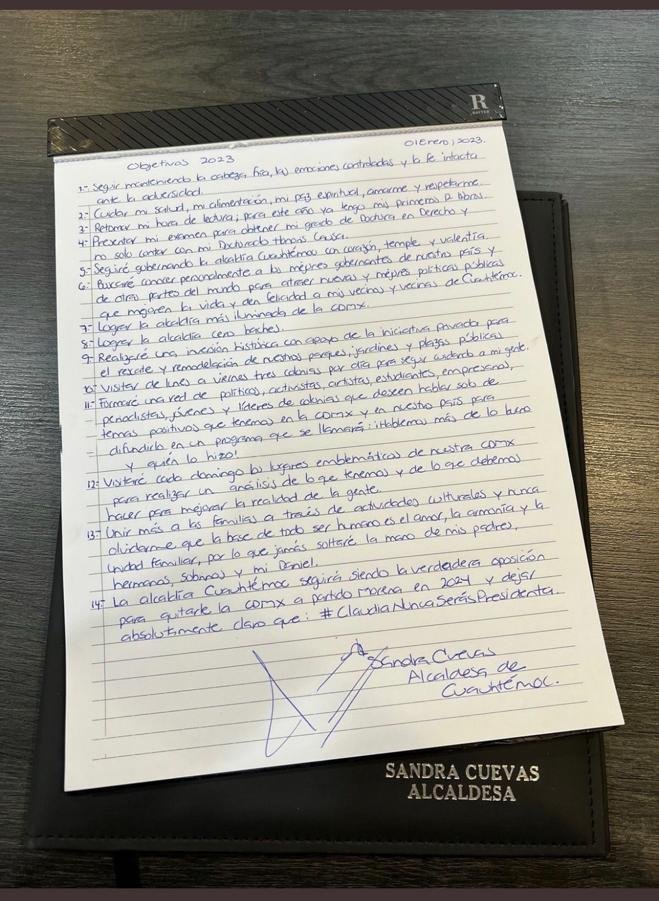 R
01 Enero, 2023.
Objetivos 2023
1.- Seguir manteniendo la cabeza fría, las emociones controladas y la fe intacta
ante la adversidad.
2.- Cuidar mi salud, mi alimentación, mi paz espiritual, amarme y respetarme.
3.- Retomar mi hora de lectura, para este año ya tengo mis primeros 12 libros.
4.- Presentar mi examen para obtener mi grado de Doctora en Derecho y
no solo contar con mi Doctorado Honoris Causa.
5.- Seguiré gobernando la alcaldía Cuauhtémoc con corazón, temple y valentía.
6.- Buscaré conocer personalmente a los mejores gobernantes de nuestro país y
de otras partes del mundo para atraer nuevas y mejores políticas públicas
que mejoren la vida y den felicidad a mis vecinos y vecinas de Cuauhtémoc.
7.- Lograr la alcaldía más iluminada de la CDMX.
8.- Lograr la alcaldía cero baches.
9.- Realizaré una inversión histórica con apoyo de la iniciativa privada para
el rescate y remodelación de nuestros parques, jardines y plazas públicas.
10.- Visitar de lunes a viernes tres colonias por día para seguir cuidando a mi gente.
11.- Formaré una red de políticos, activistas, artistas, estudiantes, empresarios,
periodistas, jóvenes y líderes de colonias que deseen hablar solo de
temas positivos que tenemos en la CDMX y en nuestro país para
difundirlo en un programa que se llamará: ¡Hablemos más de lo bueno
y quién lo hizo!
12.- Visitaré cada domingo los lugares emblemáticos de nuestra CDMX
para realizar un análisis de lo que tenemos y de lo que debemos
hacer para mejorar la realidad de la gente.
13.- Unir más a las familias a través de actividades culturales y nunca
olvidarme que la base de todo ser humano es el amor, la armonía y la
unidad familiar, por lo que jamás soltaré la mano de mis padres,
hermanos, sobrinos y mi Daniel.
14.- La alcaldía Cuauhtémoc seguirá siendo la verdadera oposición
para quitarle la CDMX a partido Morena en 2024 y dejar
absolutamente claro que: #ClaudiaNuncaSerásPresidenta
Sandra Cuevas
Alcaldesa de
Cuauhtémoc.
SANDRA CUEVAS
ALCALDESA